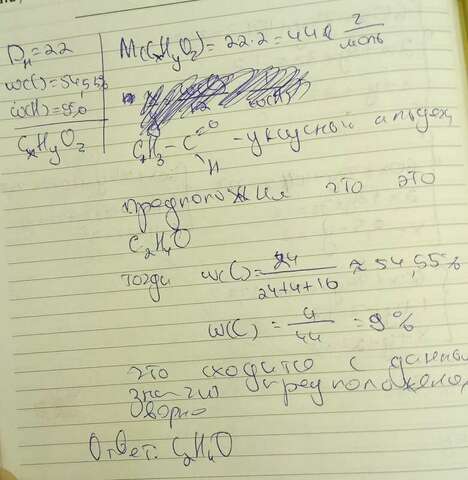 D_H = 22
w(C) = 54,5%
w(H) = 9,0
CxHyO2
M(CxHyO2) = 22·2 = 44 г/моль
CH3 - C =O - уксусный альдегид
H
предположим что это
C2H4O
тогда w(C) = 24/(24+4+16) ≈ 54,55%
w(C) = 4/44 = 9%
это сходится с данными
значит предположено
верно
Ответ: C2H4O